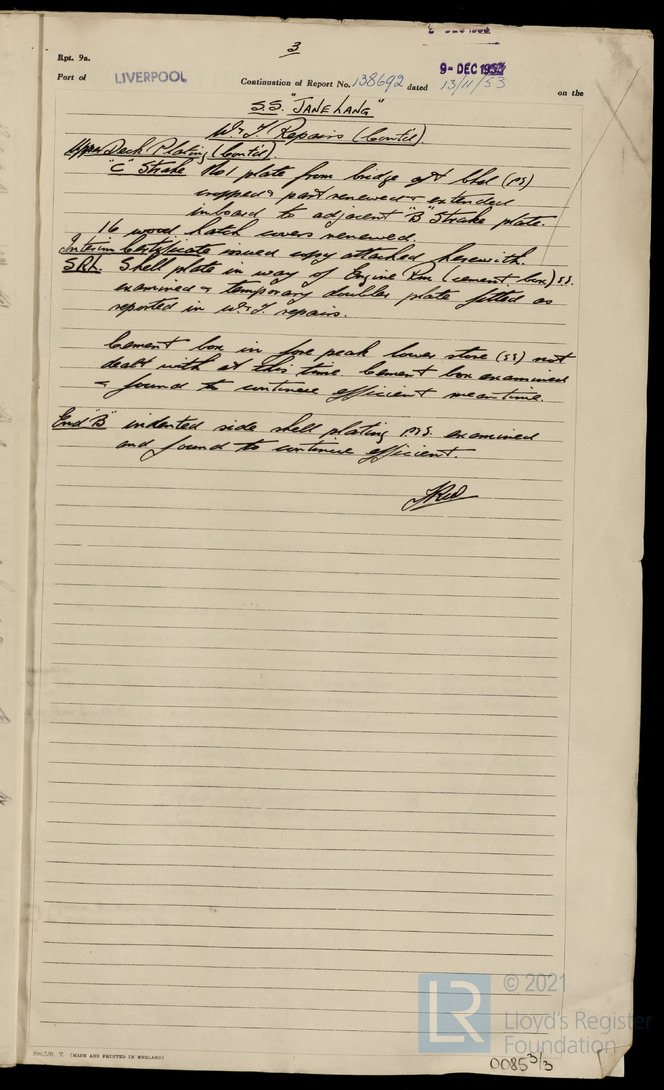 3
Rpt. 9a.
9 - DEC 1953
Port of LIVERPOOL Continuation of Report No. 138692 dated 13/11/53 on the
S.S. "JANE LANG"
W & T. Repairs (Contd).
Upper Deck Plating (Contd).
"C" Strake No1 plate from bridge aft bhd (PS)
cropped & part renewed & extended
inboard to adjacent "B" Strake plate.
16 wood hatch covers renewed.
Interim Certificate issued copy attached herewith.
SRL. Shell plate in way of Engine Rm (cement box) SS.
examined & temporary doubler plate fitted as
reported in W & T. repairs.
Cement box in fore peak lower store (SS) not
dealt with at this time Cement box examined
& found to continue efficient meantime.
End "B" indented side shell plating P.S. examined
and found to continue efficient.
(MADE AND PRINTED IN ENGLAND)
LR
© 2021
Lloyd's Register
Foundation
0085 3/3